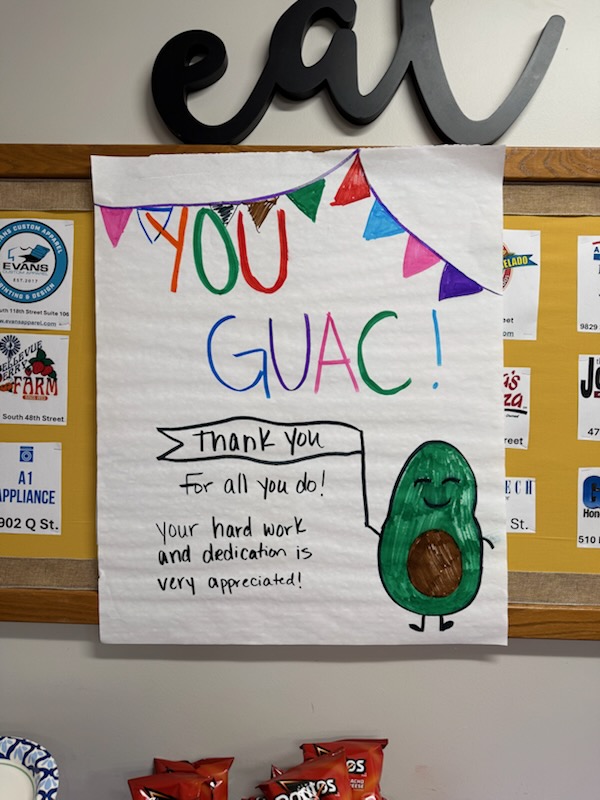 eat
YOU
GUAC!
Thank you
For all you do!
Your hard work
and dedication is
very appreciated!
EVANS CUSTOM APPAREL
EVANS
CUSTOM APPAREL
EST. 2017
PRINTING & DESIGN
uth 118th Street Suite 106
w.evansapparel.com
BELLEVUE
BERRY
FARM
South 48th Street
A1
APPLIANCE
902 Q St.
ELADO
treet
om
a's
za
reet
ECH
St.
9829
Jo
47
G
Hon
510
Doritos
OS
NACHO
CHEESE